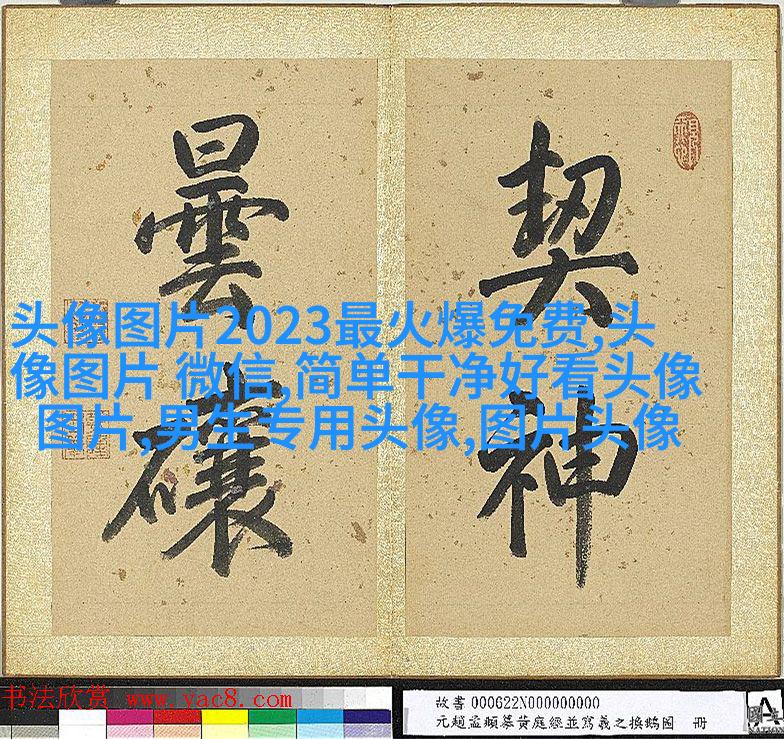 契神
曇
头像图片2023最火爆免费,头
像图片 微信,简单干净好看头像
图片,男生专用头像,图片头像
书法欣赏 www.yac8.com
故書000622N000000000
元趙孟頫摹黃庭經並寫羲之換鵝圖 冊